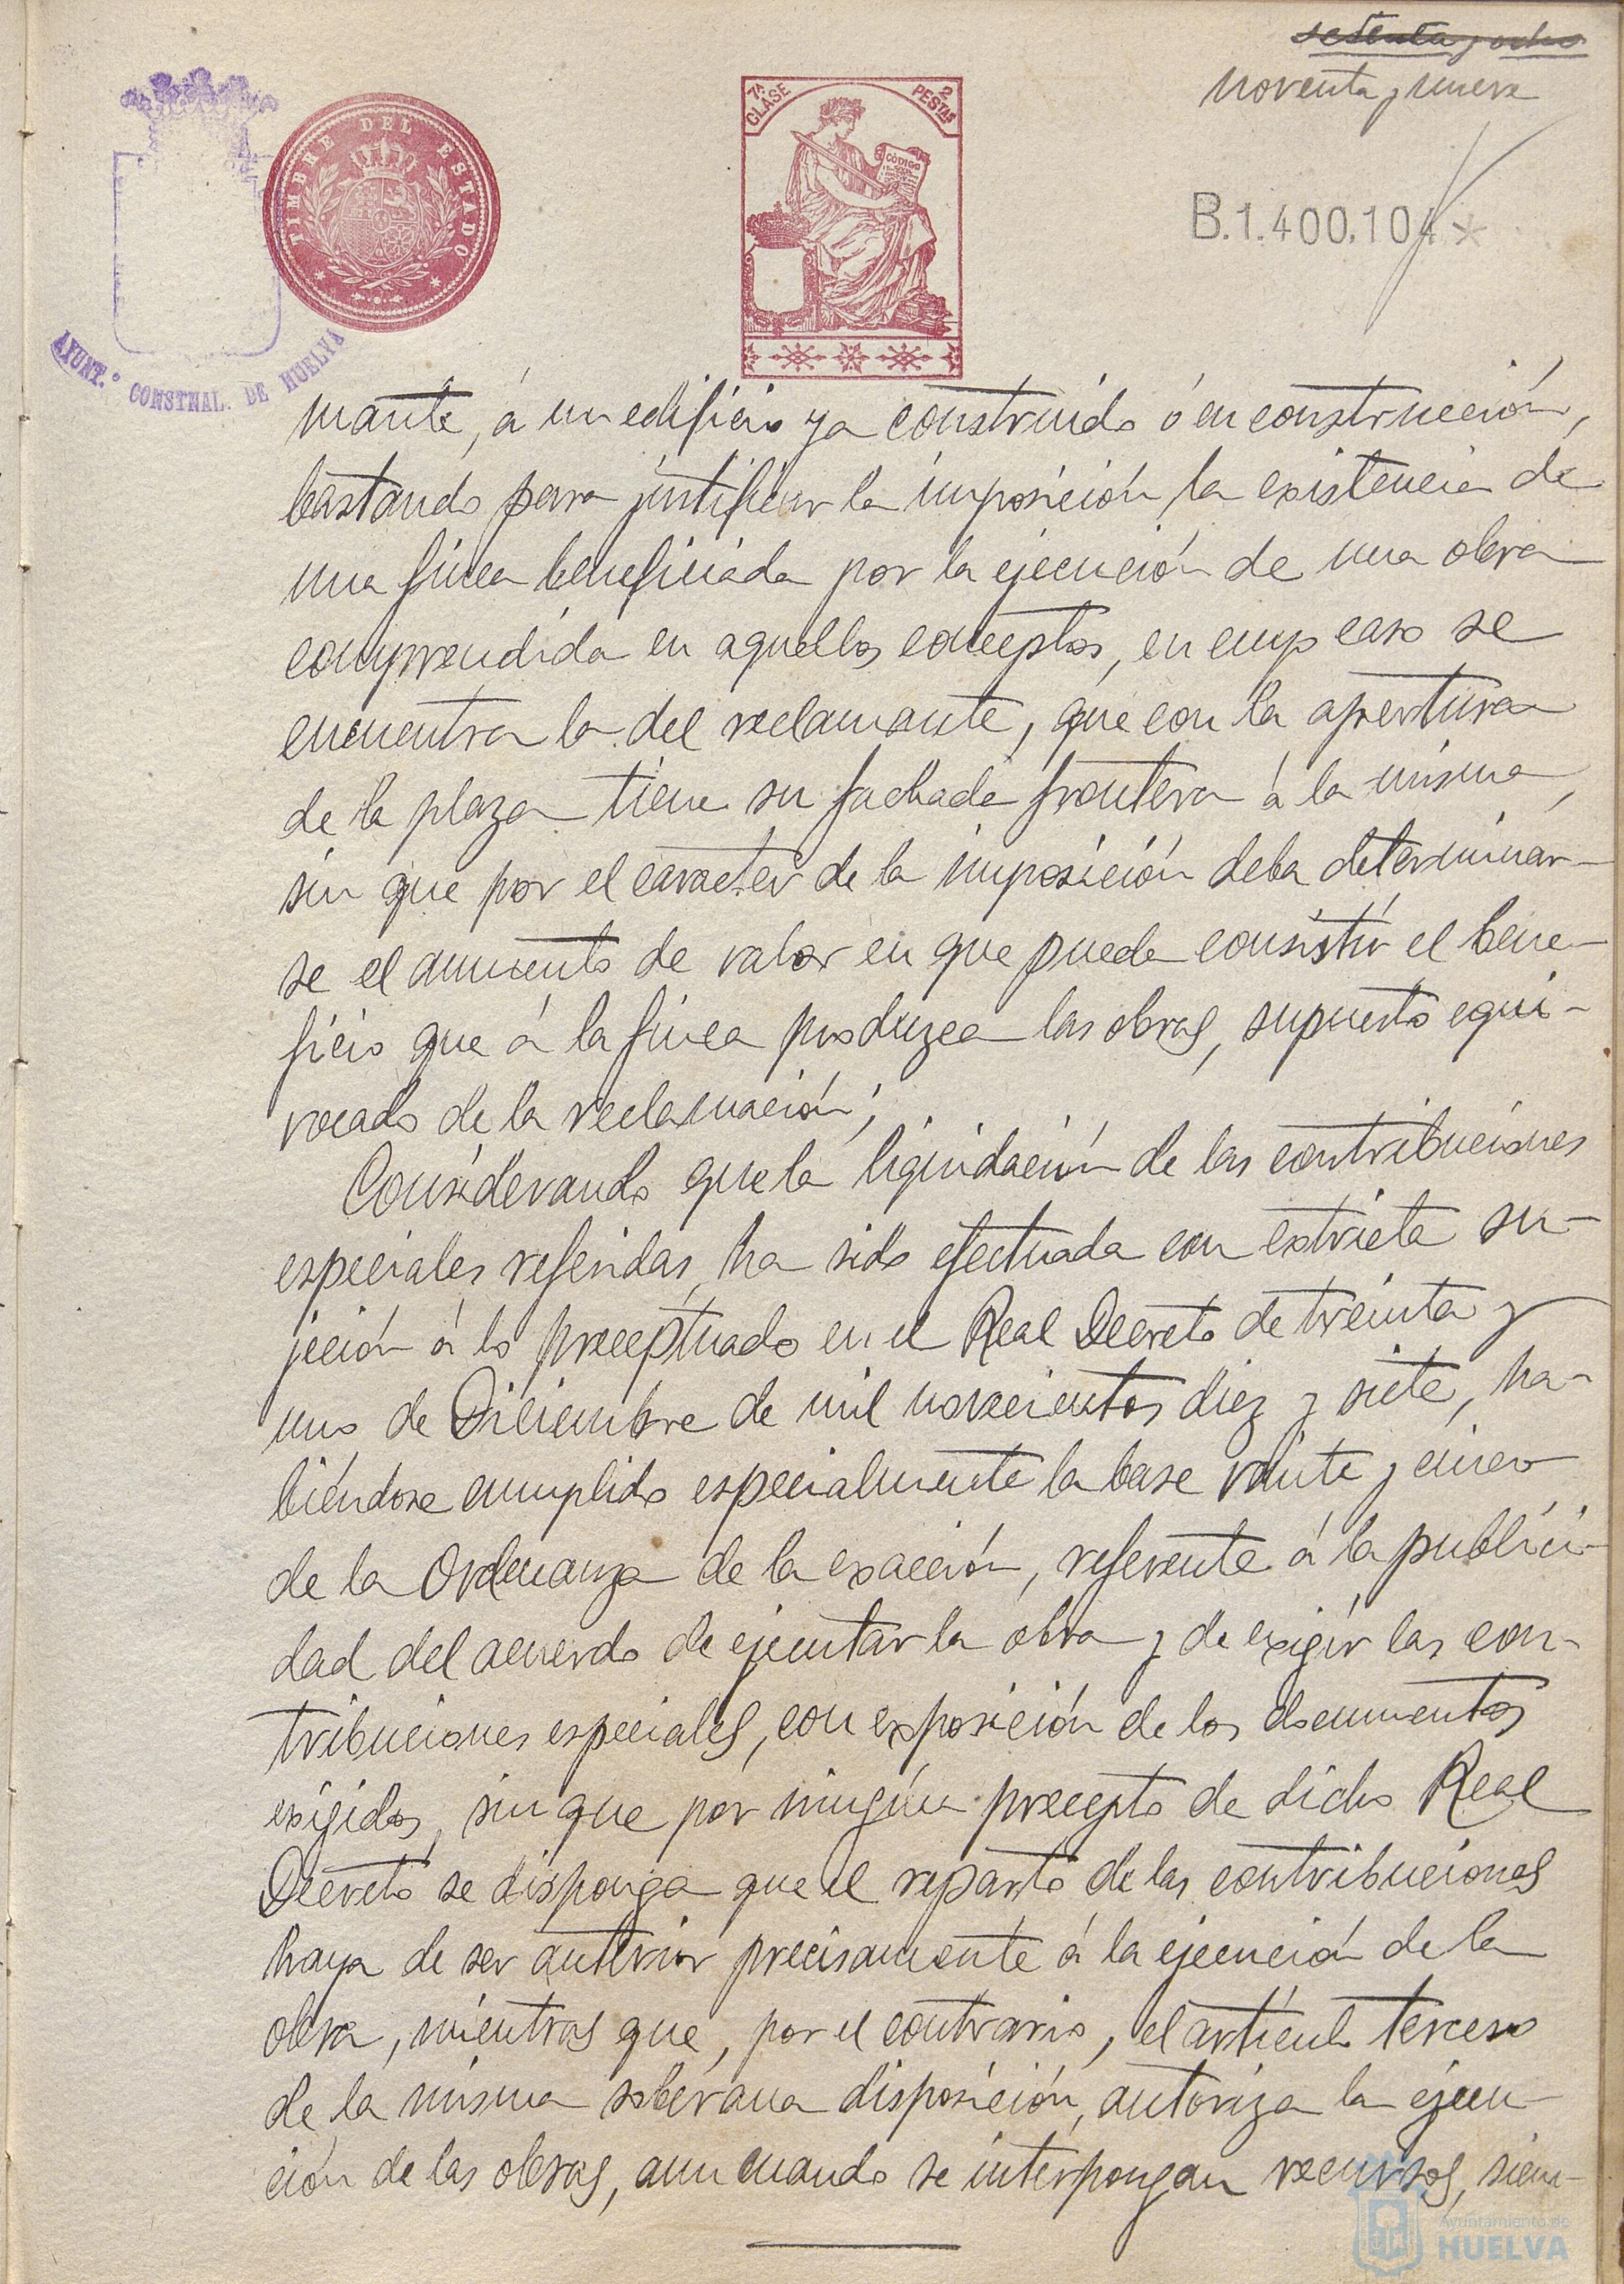 setenta y ocho
noventa y nueve
TIMBRE DEL ESTADO
7ª CLASE
2 PESTAS
CÓDIGO
B.1.400.104*
AYUNT.º CONSTNAL. DE HUELVA
mante, á un edificio ya construido ó en construcción,
bastando para justificar la imposición, la existencia de
una finca beneficiada por la ejecución de una obra
comprendida en aquellos conceptos, en cuyo caso se
encuentra la del reclamante, que con la apertura
de la plaza tiene su fachada frontera á la misma,
sin que por el caracter de la imposición deba determinar-
se el aumento de valor en que puede consistir el bene-
ficio que á la finca produzca las obras, supuesto equi-
vocado de la reclamación;
Considerando que la liquidación de las contribuciones
especiales referidas, ha sido efectuada con extricta su-
jeción á lo preceptuado en el Real Decreto de treinta y
uno de Diciembre de mil novecientos diez y siete, ha-
biéndose cumplido especialmente la base veinte y cinco
de la Ordenanza de la exacción, referente á la publici-
dad del acuerdo de ejecutar la obra y de exigir las con-
tribuciones especiales, con exposición de los documentos
exigidos, sin que por ningún precepto de dicho Real
Decreto se disponga que el reparto de las contribuciones
haya de ser anterior precisamente á la ejecución de la
obra, mientras que, por el contrario, el artículo tercero
de la misma soberana disposición, autoriza la ejecu-
ción de las obras, aun cuando se interpongan recursos, siem-
Ayuntamiento de
HUELVA